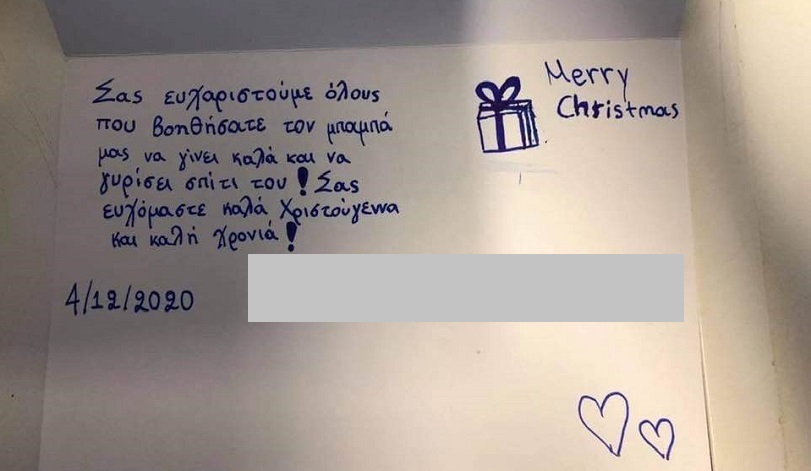 Σας ευχαριστούμε όλους
που βοηθήσατε τον μπαμπά
μας να γίνει καλά και να
γυρίσει σπίτι του! Σας
ευχόμαστε καλά Χριστούγεννα
και καλή χρονιά!
Merry
Christmas
4/12/2020